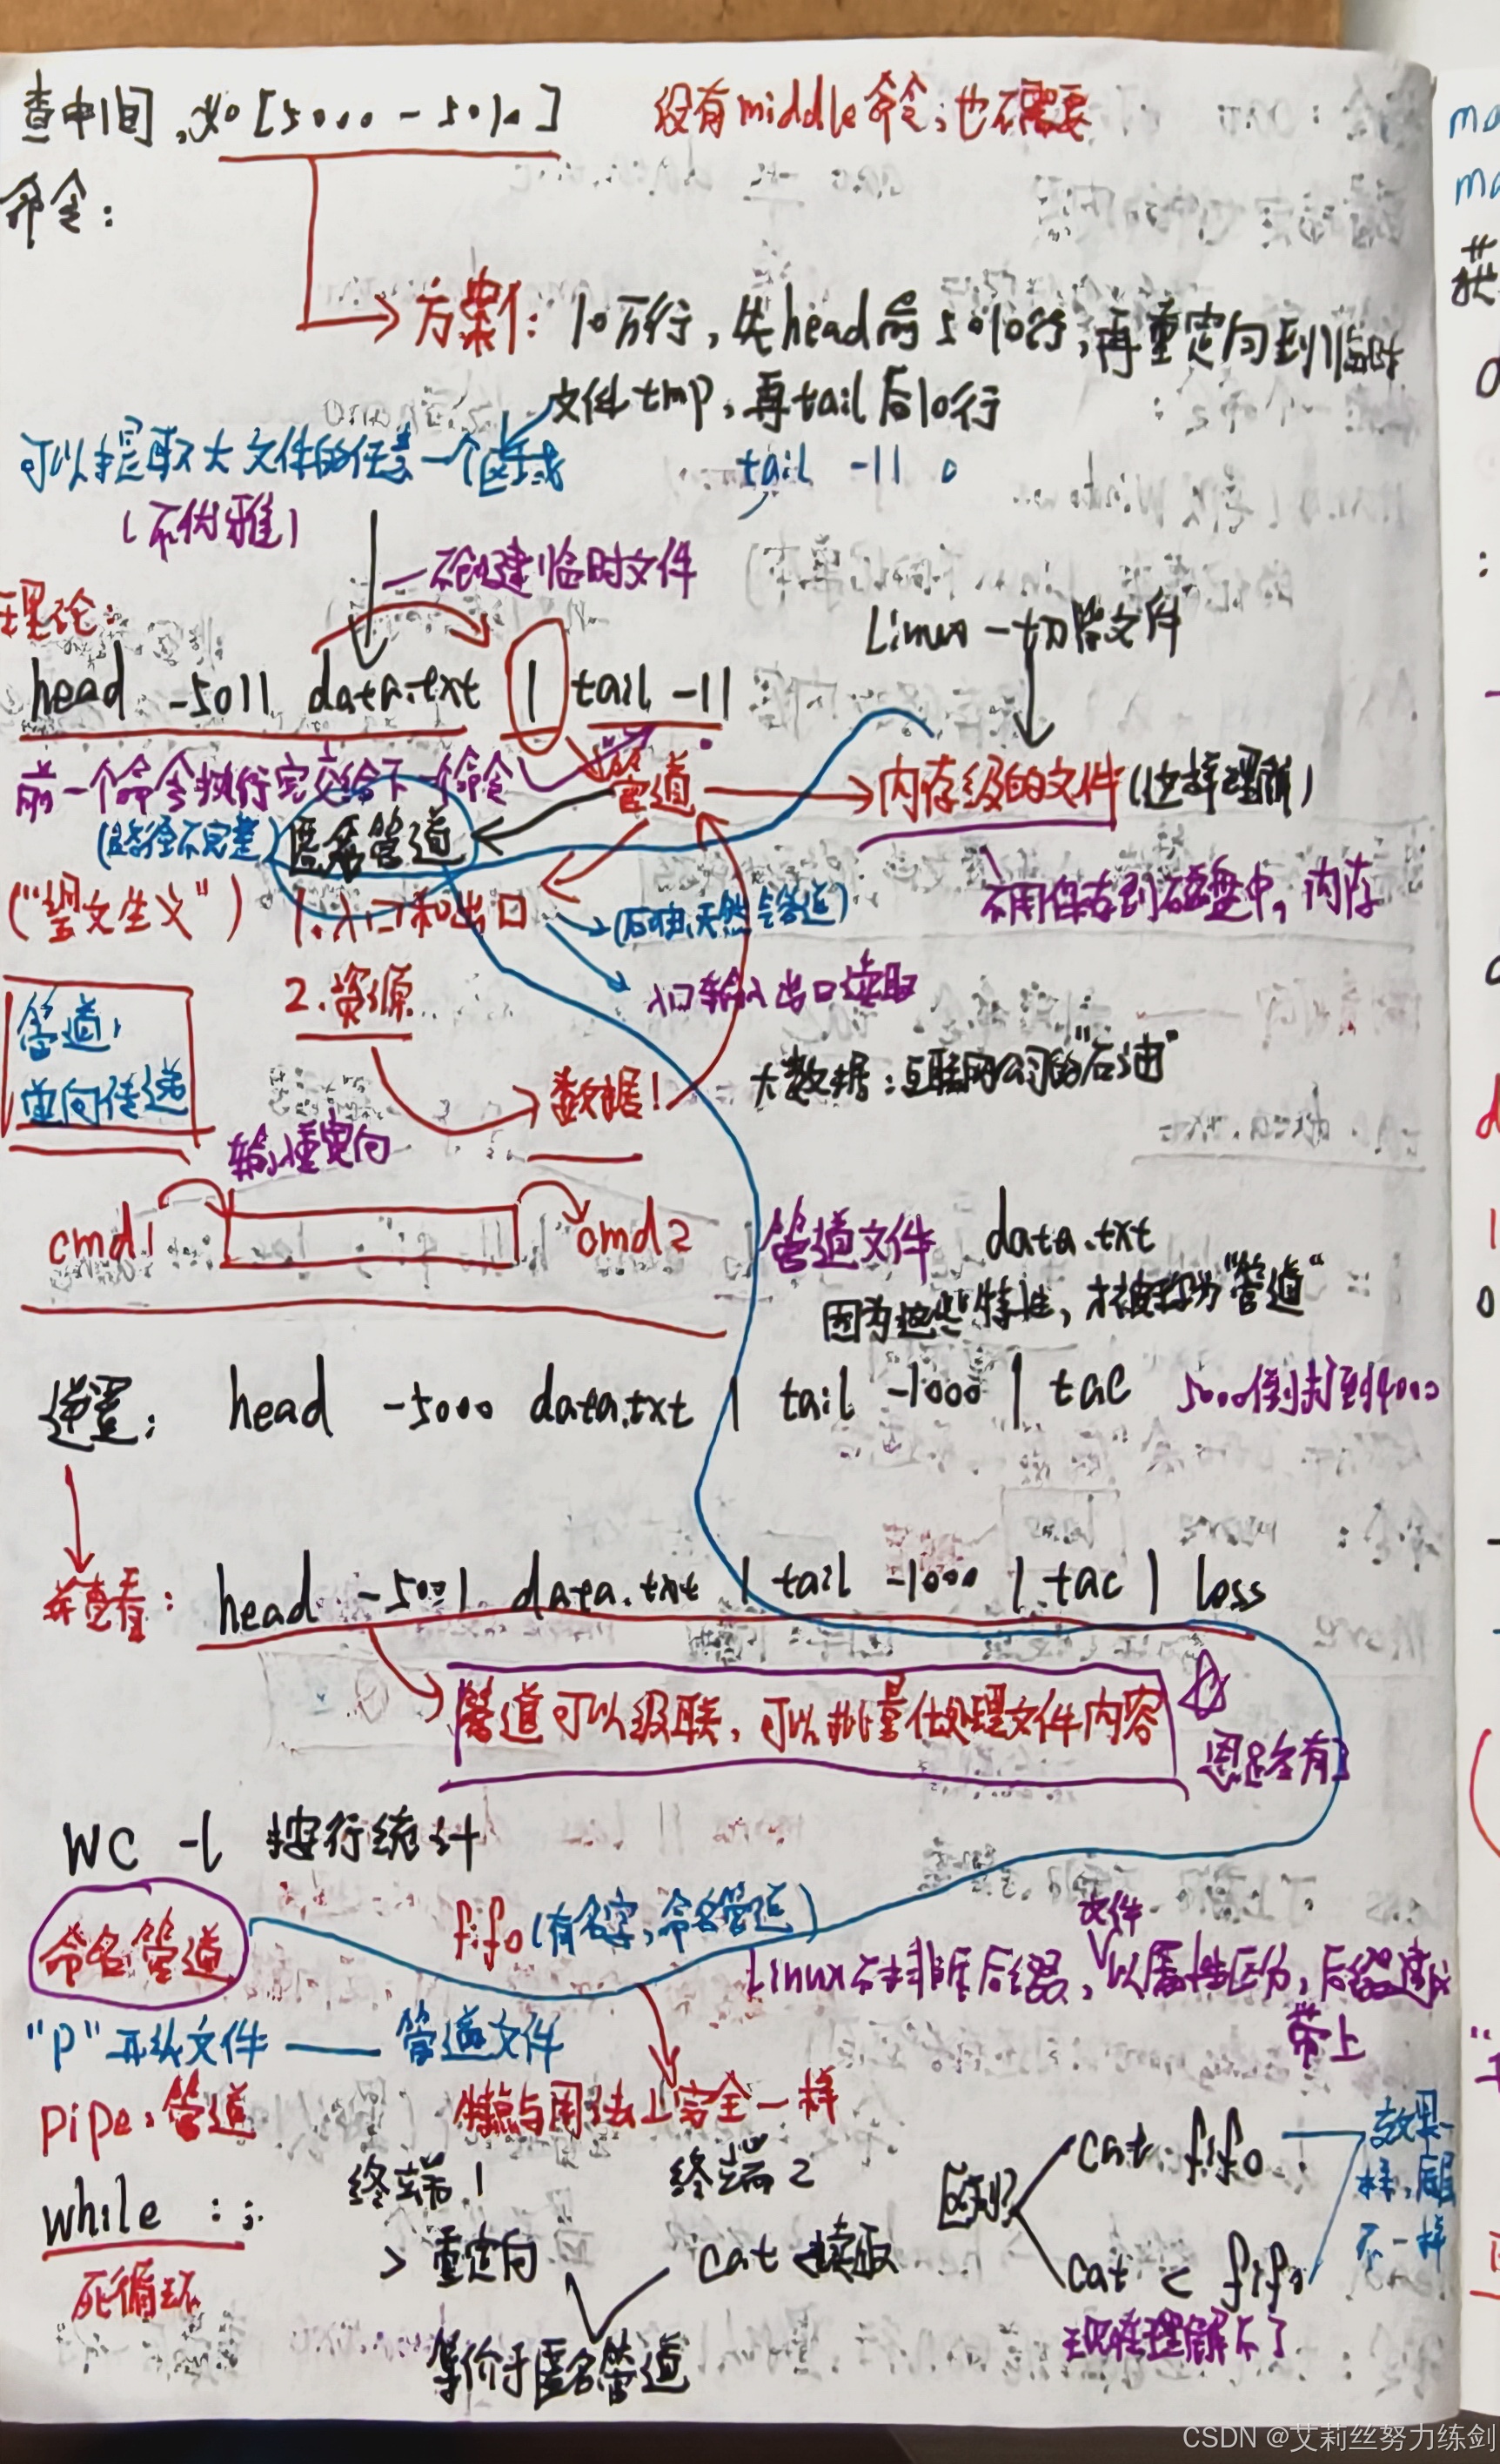 查中间,如[5000-5010] 没有middle命令,也不需要
命令:
方案1: 10万行,先head前5010行,再重定向到临时
文件tmp,再tail后10行
可以提取大文件的任意一个区域 tail -11
(不优雅)
不创建临时文件
理论:
Linux 一切皆文件
head -5011 data.txt | tail -11
前一个命令执行完交给下一个命令 管道 内存级的文件(这样理解)
(路径不完整) 匿名管道
不用保存到磁盘中,内存
("望文生义") 1.入口和出口 (石油、天然气管道)
2.资源 入口输入出口读取
管道:
单向传递 数据! 大数据:互联网公司的"石油"
输入重定向
cmd1 cmd2 管道文件 data.txt
因为这些特性,才被称为"管道"
逆置: head -5000 data.txt | tail -1000 | tac 5000倒打到4000
并查看: head -5001 data.txt | tail -1000 | tac | less
管道可以级联,可以批量化处理文件内容
WC -l 按行统计
命名管道 fifo(有名字,命名管道) 文件
Linux不排斥后缀,以属性区分,后缀建议
带上
"P"开头文件 —— 管道文件
pipe:管道 特点与用法上完全一样
终端1 终端2 区别? cat fifo 效果一
样,底层
不一样
while :;
> 重定向 cat 读取 cat < fifo
死循环 现在理解不了
等价于匿名管道
CSDN @艾莉丝努力练剑